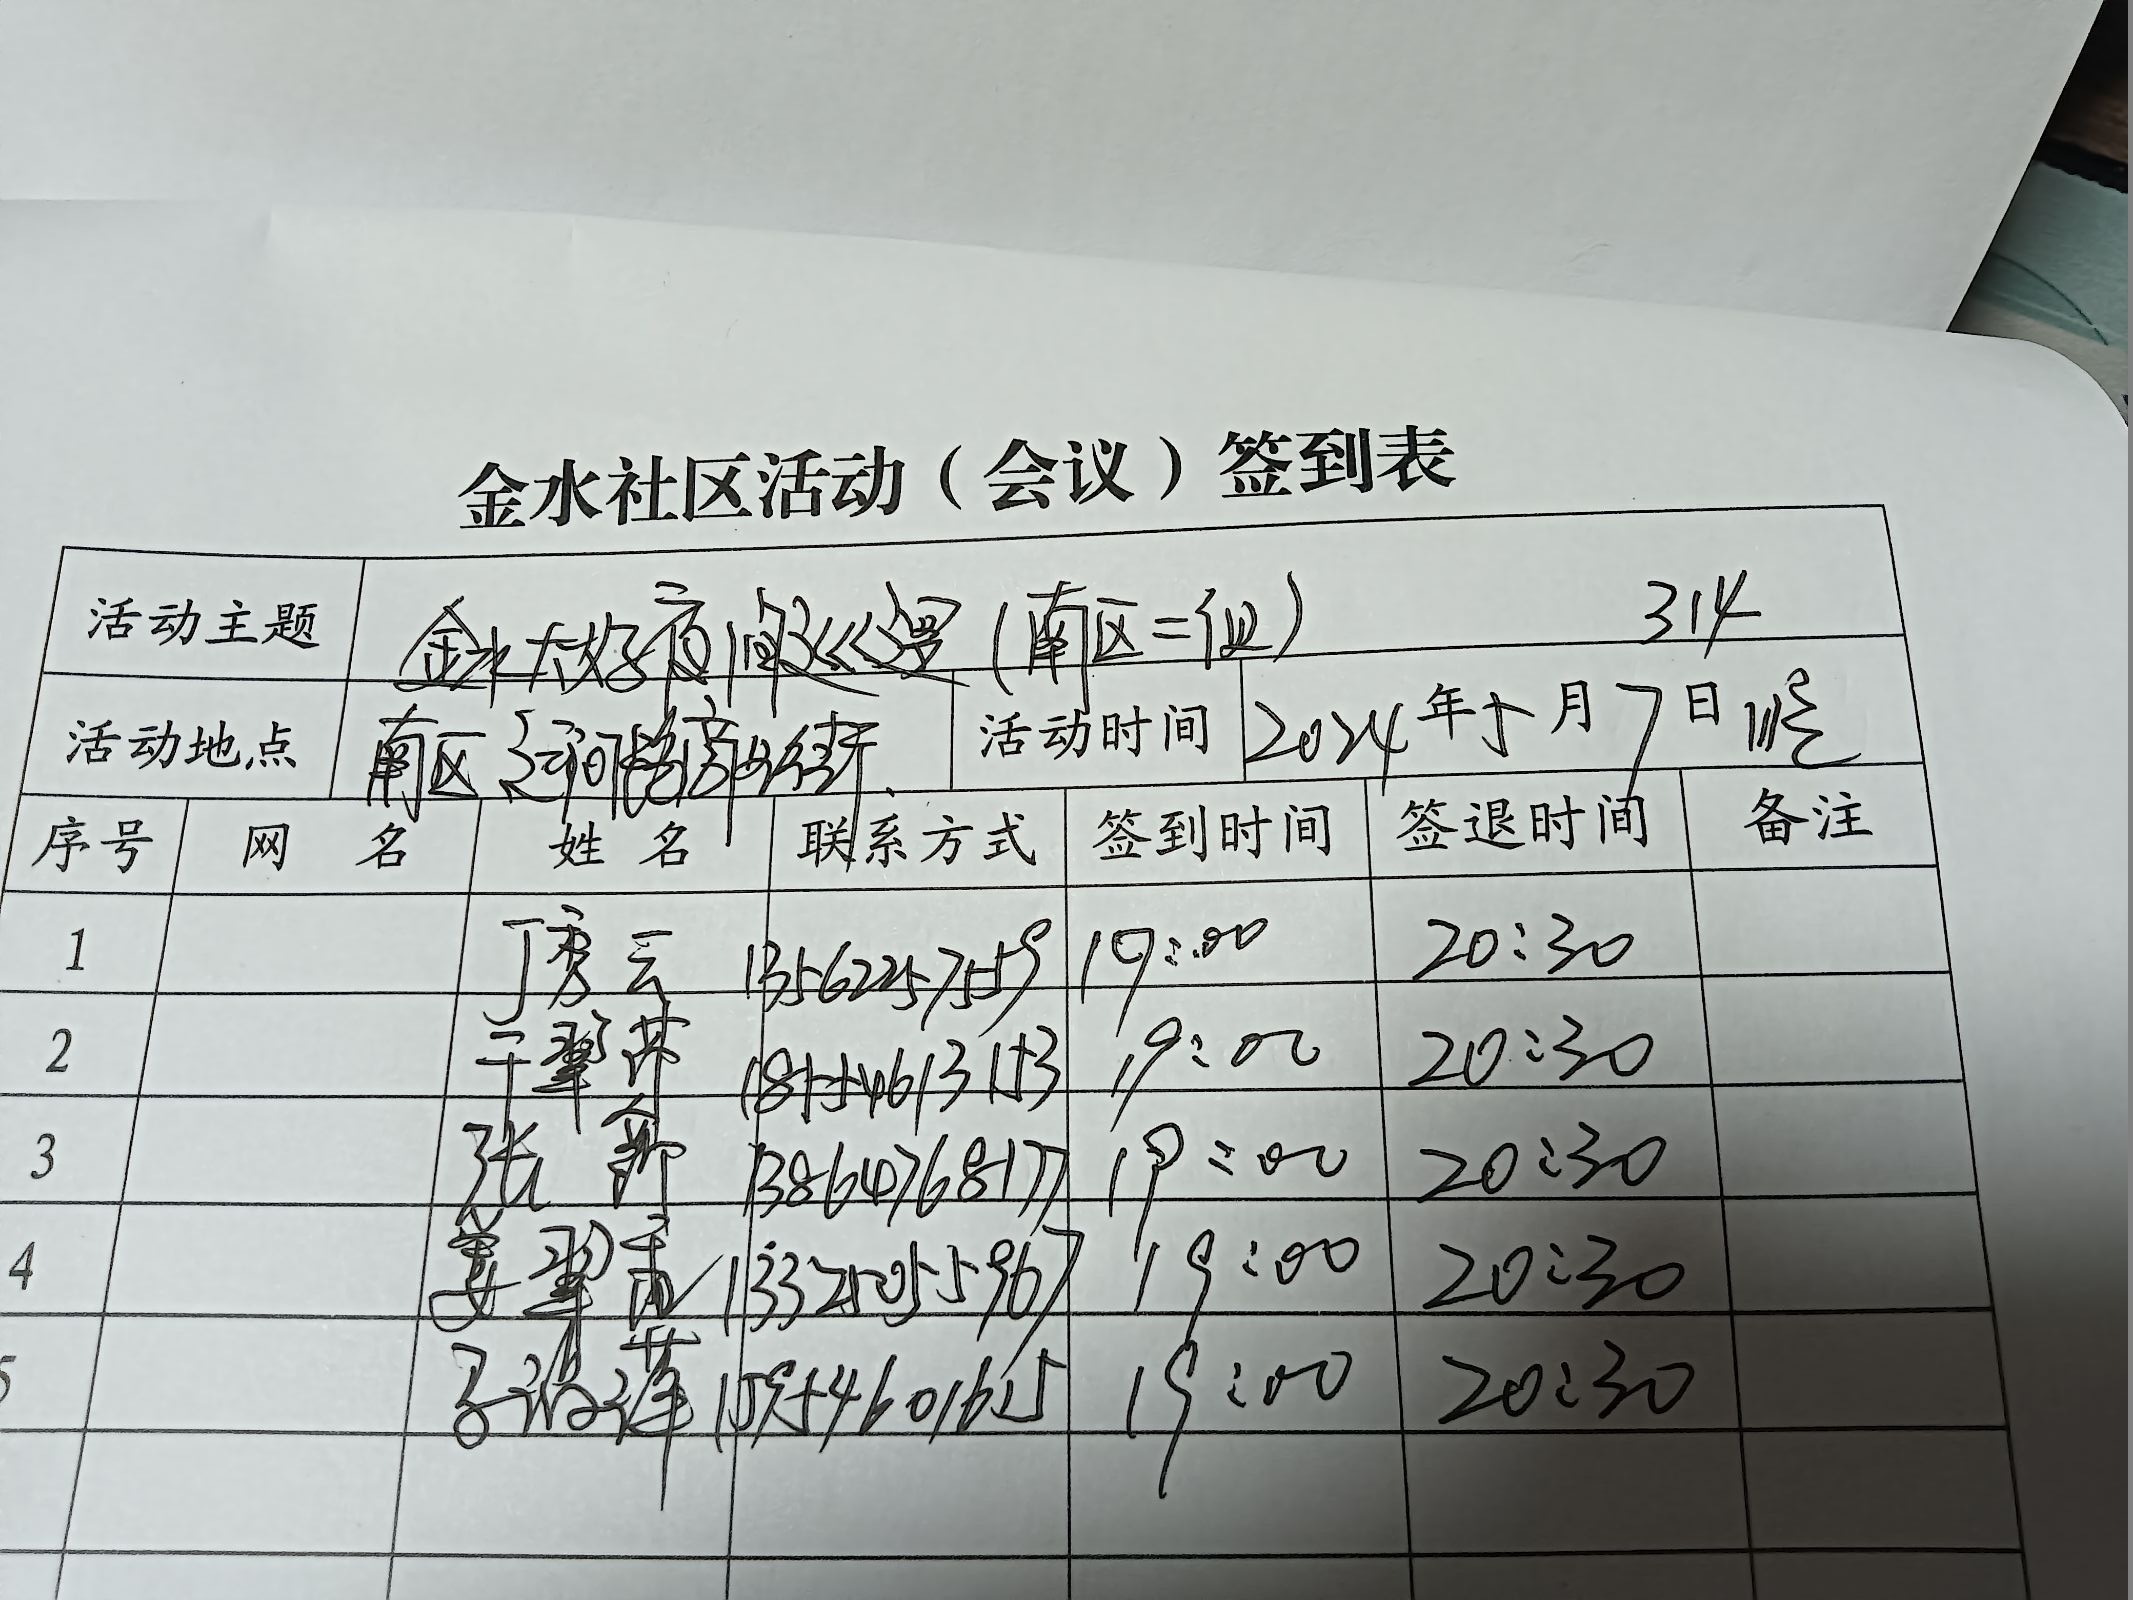 金水社区活动（会议）签到表
活动主题 金水大妈夜间巡逻（南区二组） 314
活动地点 南区 活动时间 2024年5月7日晚
序号 网 名 姓 名 联系方式 签到时间 签退时间 备注
1 丁秀云 13562257559 19:00 20:30
2 于翠萍 18554613153 19:00 20:30
3 张 13864768177 19:00 20:30
4 姜翠香 13325055967 19:00 20:30
5 15954601615 19:00 20:30